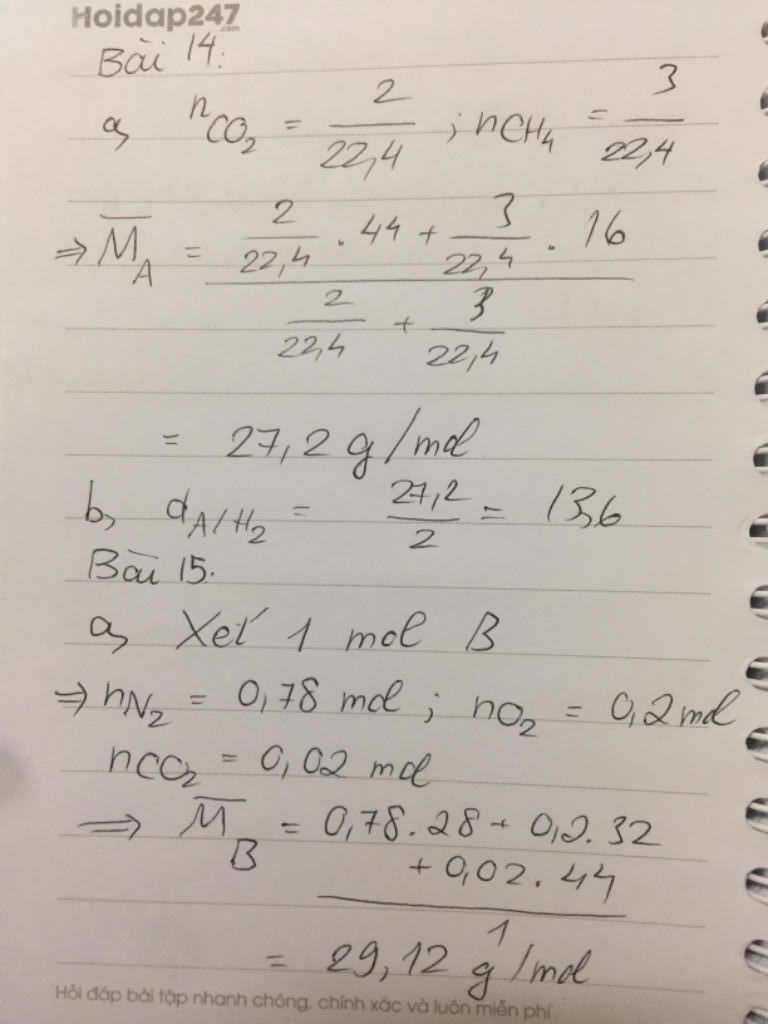 Hoidap247
.com
Bài 14:
a, nCO2 = 2/22,4 ; nCH4 = 3/22,4
⇒ M̅A = (2/22,4 . 44 + 3/22,4 . 16) / (2/22,4 + 3/22,4)
= 27,2 g/mol
b, dA/H2 = 27,2/2 = 13,6
Bài 15.
a, Xét 1 mol B
⇒ nN2 = 0,78 mol ; nO2 = 0,2 mol
nCO2 = 0,02 mol
⇒ M̅B = 0,78.28 + 0,2.32
+ 0,02.44
1
= 29,12 g/mol
Hỏi đáp bài tập nhanh chóng, chính xác và luôn miễn phí